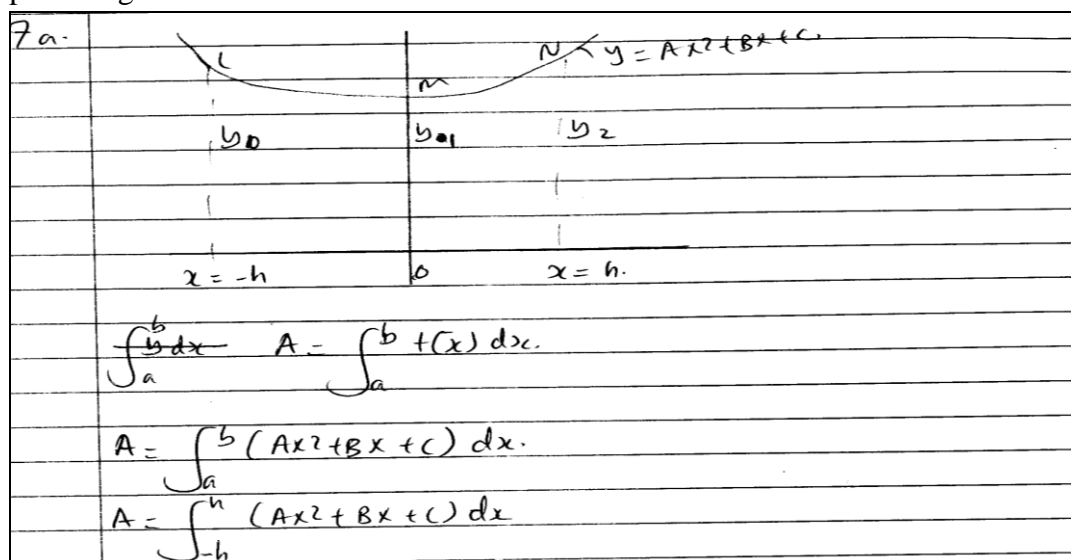 7a.
L
N
y = Ax²+Bx+C.
M
y0
y1
y2
x = -h
0
x = h.
∫ₐᵇ y dx A = ∫ₐᵇ f(x) dx.
A = ∫ₐᵇ (Ax²+Bx+C) dx.
A = ∫₋ₕʰ (Ax²+Bx+C) dx